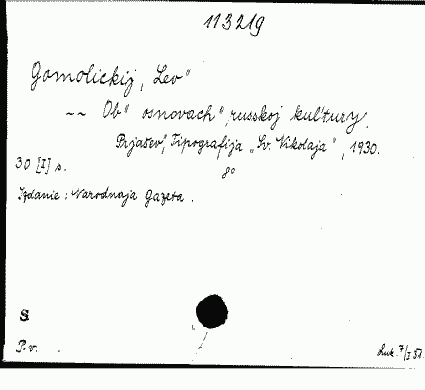 113219
Gomolickij, Lev"
~~ Ob" osnovach" russkoj kul'tury.
Prjašev", Tipografija „Sv. Nikolaja", 1930.
30 [I] s. 8°
Izdanie: Narodnaja Gazeta.
S
P. v.
Luk. 7/I 51.